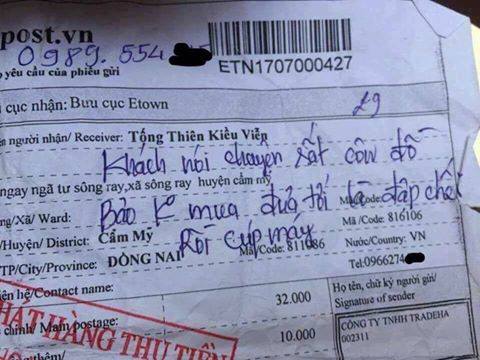 post.vn
0989.554
ETN1707000427
yêu cầu của phiếu gửi
cục nhận: Bưu cục Etown
29
người nhận/ Receiver: Tống Thiên Kiều Viễn
Khách nói chuyện xất côn đồ
ngay ngã tư sông ray,xã sông ray huyện cẩm mỹ
Bảo K mua đưa tới là đập chế
Xã/ Ward:
Mã/Code:
Huyện/ District: Cẩm Mỹ
Mã /Code: 816106
Rồi cúp máy
TP/City/Province: ĐỒNG NAI
Mã/Code: 811086
Nước/Country: VN
Tel:0966274
hệ/Contact name:
32.000
Họ tên, chữ ký người gửi/
Signature of sender
chính/ Main postage:
10.000
CÔNG TY TNHH TRADEHA
002311
PHÁT HÀNG THU TIỀN
thêm/